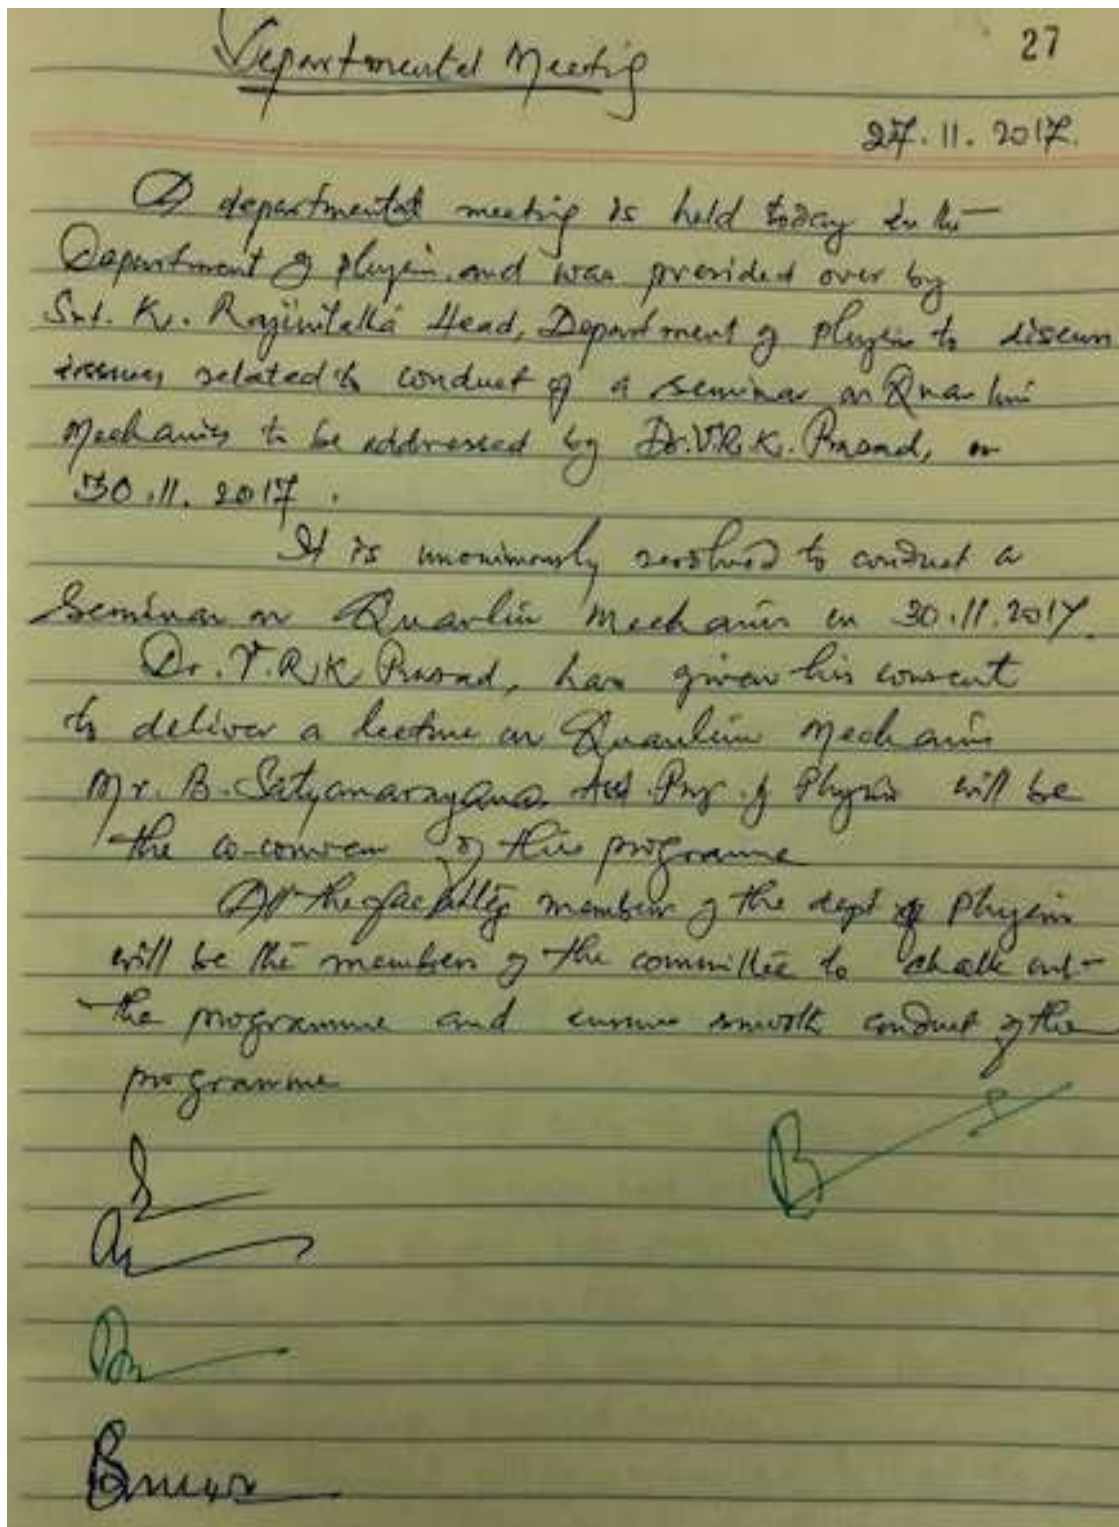 Departmental Meeting
27
27.11.2017.
A departmental meeting is held today in the
Department of physics and was presided over by
Smt. K. Head, Department of physics to discuss
issues related to conduct of a seminar on Quantum
Mechanics to be addressed by Dr. V.R.K. Prasad, on
30.11.2017.
It is unanimously resolved to conduct a
Seminar on Quantum Mechanics on 30.11.2017.
Dr. V.R.K Prasad, has given his consent
to deliver a lecture on Quantum Mechanics
Mr. B. Satyanarayana Asst. Prof. of Physics will be
the co-convener of this programme
All the faculty members of the dept of Physics
will be the members of the committee to chalk out
the programme and ensure smooth conduct of the
programme